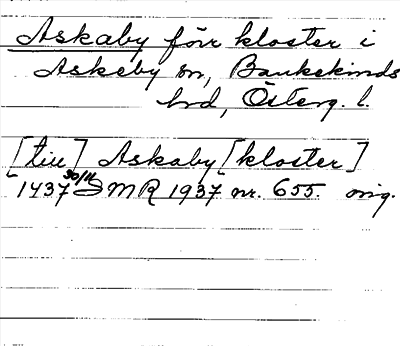 Askaby förr kloster i
Askeby sn, Bankekinds
hrd, Österg. l.
[tiu] Askaby [kloster]
1437 30/11 SMR 1937 nr. 655 orig.